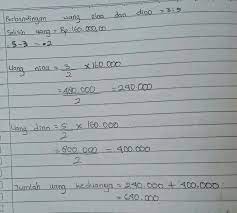 Perbandingan uang nina dan dino = 3:5
Selisih uang = Rp. 160.000,00
5-3 = 2
Uang nina = 3/2 x 160.000
= 480.000/2 = 240.000
Uang dino = 5/2 x 160.000
= 800.000/2 = 400.000
Jumlah uang keduanya = 240.000 + 400.000
= 640.000